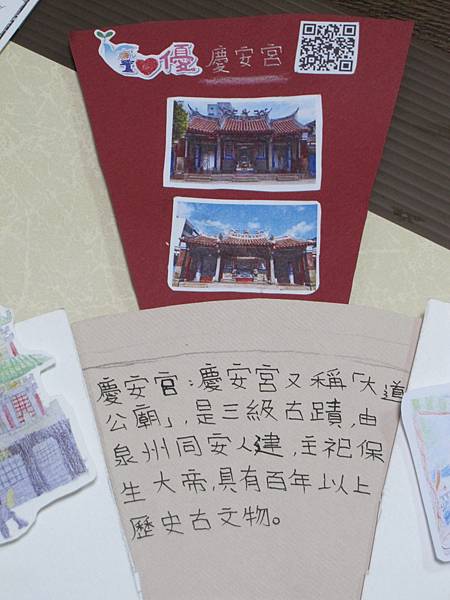 優 慶安宮
慶安宮:慶安宮又稱「大道
公廟」,是三級古蹟,由
泉州同安人建,主祀保
生大帝,具有百年以上
歷史古文物。